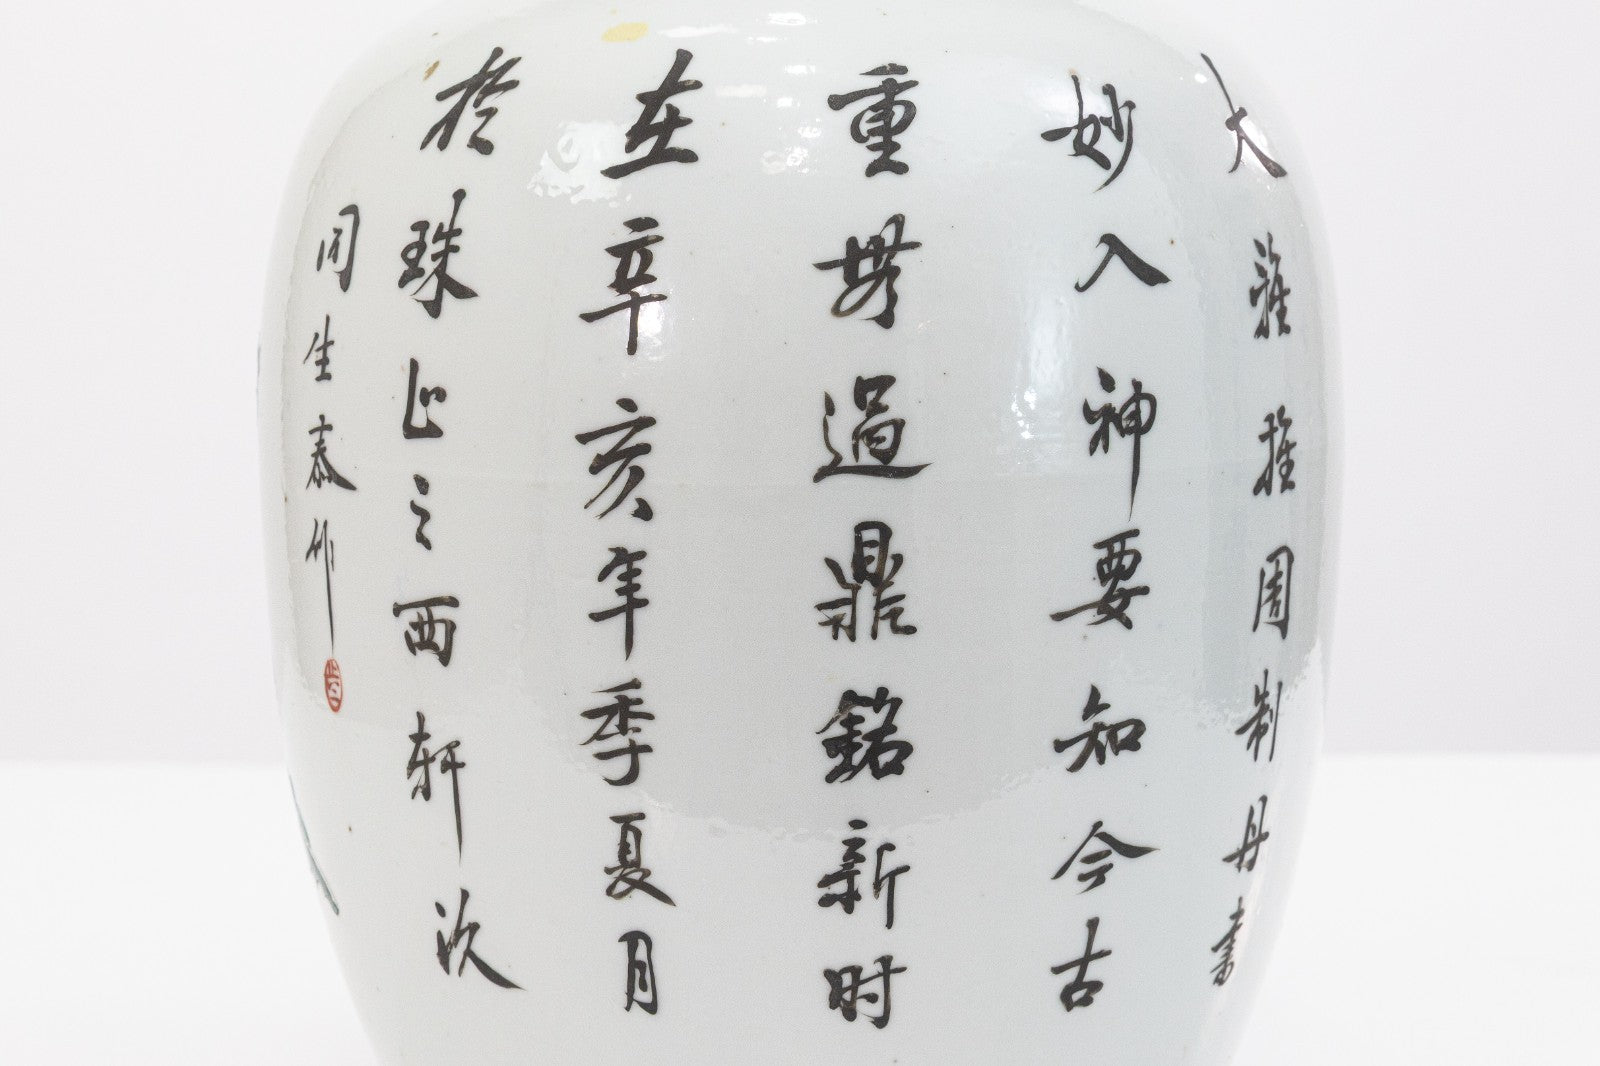 大雅推周制丹書
妙入神要知今古
重毋過鼎銘新時
在辛亥年季夏月
於珠山之西軒次
周生泰作